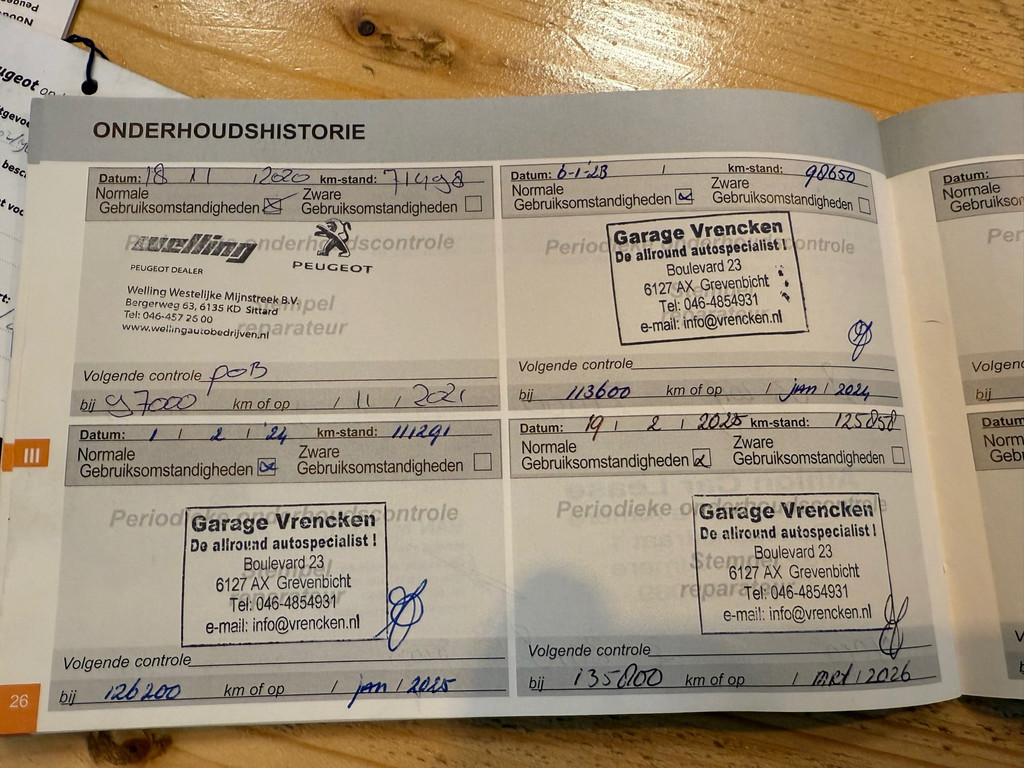 ONDERHOUDSHISTORIE
Datum: 18 / 11 / 2020 km-stand: 71498
Normale Gebruiksomstandigheden ☒ Zware Gebruiksomstandigheden ☐
Periodieke onderhoudscontrole
welling
PEUGEOT DEALER
PEUGEOT
Welling Westelijke Mijnstreek B.V.
Bergerweg 63, 6135 KD Sittard
Tel: 046-457 26 00
www.wellingautobedrijven.nl
Stempel
reparateur
Volgende controle POB
bij 97000 km of op / 11 / 2021
Datum: 6-1-'23 / km-stand: 98650
Normale Gebruiksomstandigheden ☒ Zware Gebruiksomstandigheden ☐
Periodieke onderhoudscontrole
Garage Vrencken
De allround autospecialist !
Boulevard 23
6127 AX Grevenbicht
Tel: 046-4854931
e-mail: info@vrencken.nl
Stempel
reparateur
Volgende controle
bij 113600 km of op / jan / 2024
Datum: 1 / 2 / '24 km-stand: 111291
Normale Gebruiksomstandigheden ☒ Zware Gebruiksomstandigheden ☐
Periodieke onderhoudscontrole
Garage Vrencken
De allround autospecialist !
Boulevard 23
6127 AX Grevenbicht
Tel: 046-4854931
e-mail: info@vrencken.nl
Stempel
reparateur
Volgende controle
bij 126200 km of op / jan / 2025
Datum: 19 / 2 / 2025 km-stand: 125858
Normale Gebruiksomstandigheden ☒ Zware Gebruiksomstandigheden ☐
Periodieke onderhoudscontrole
Garage Vrencken
De allround autospecialist !
Boulevard 23
6127 AX Grevenbicht
Tel: 046-4854931
e-mail: info@vrencken.nl
Stempel
reparateur
Volgende controle
bij 135800 km of op / MRT / 2026
III
26
Datum:
Normale
Datum: